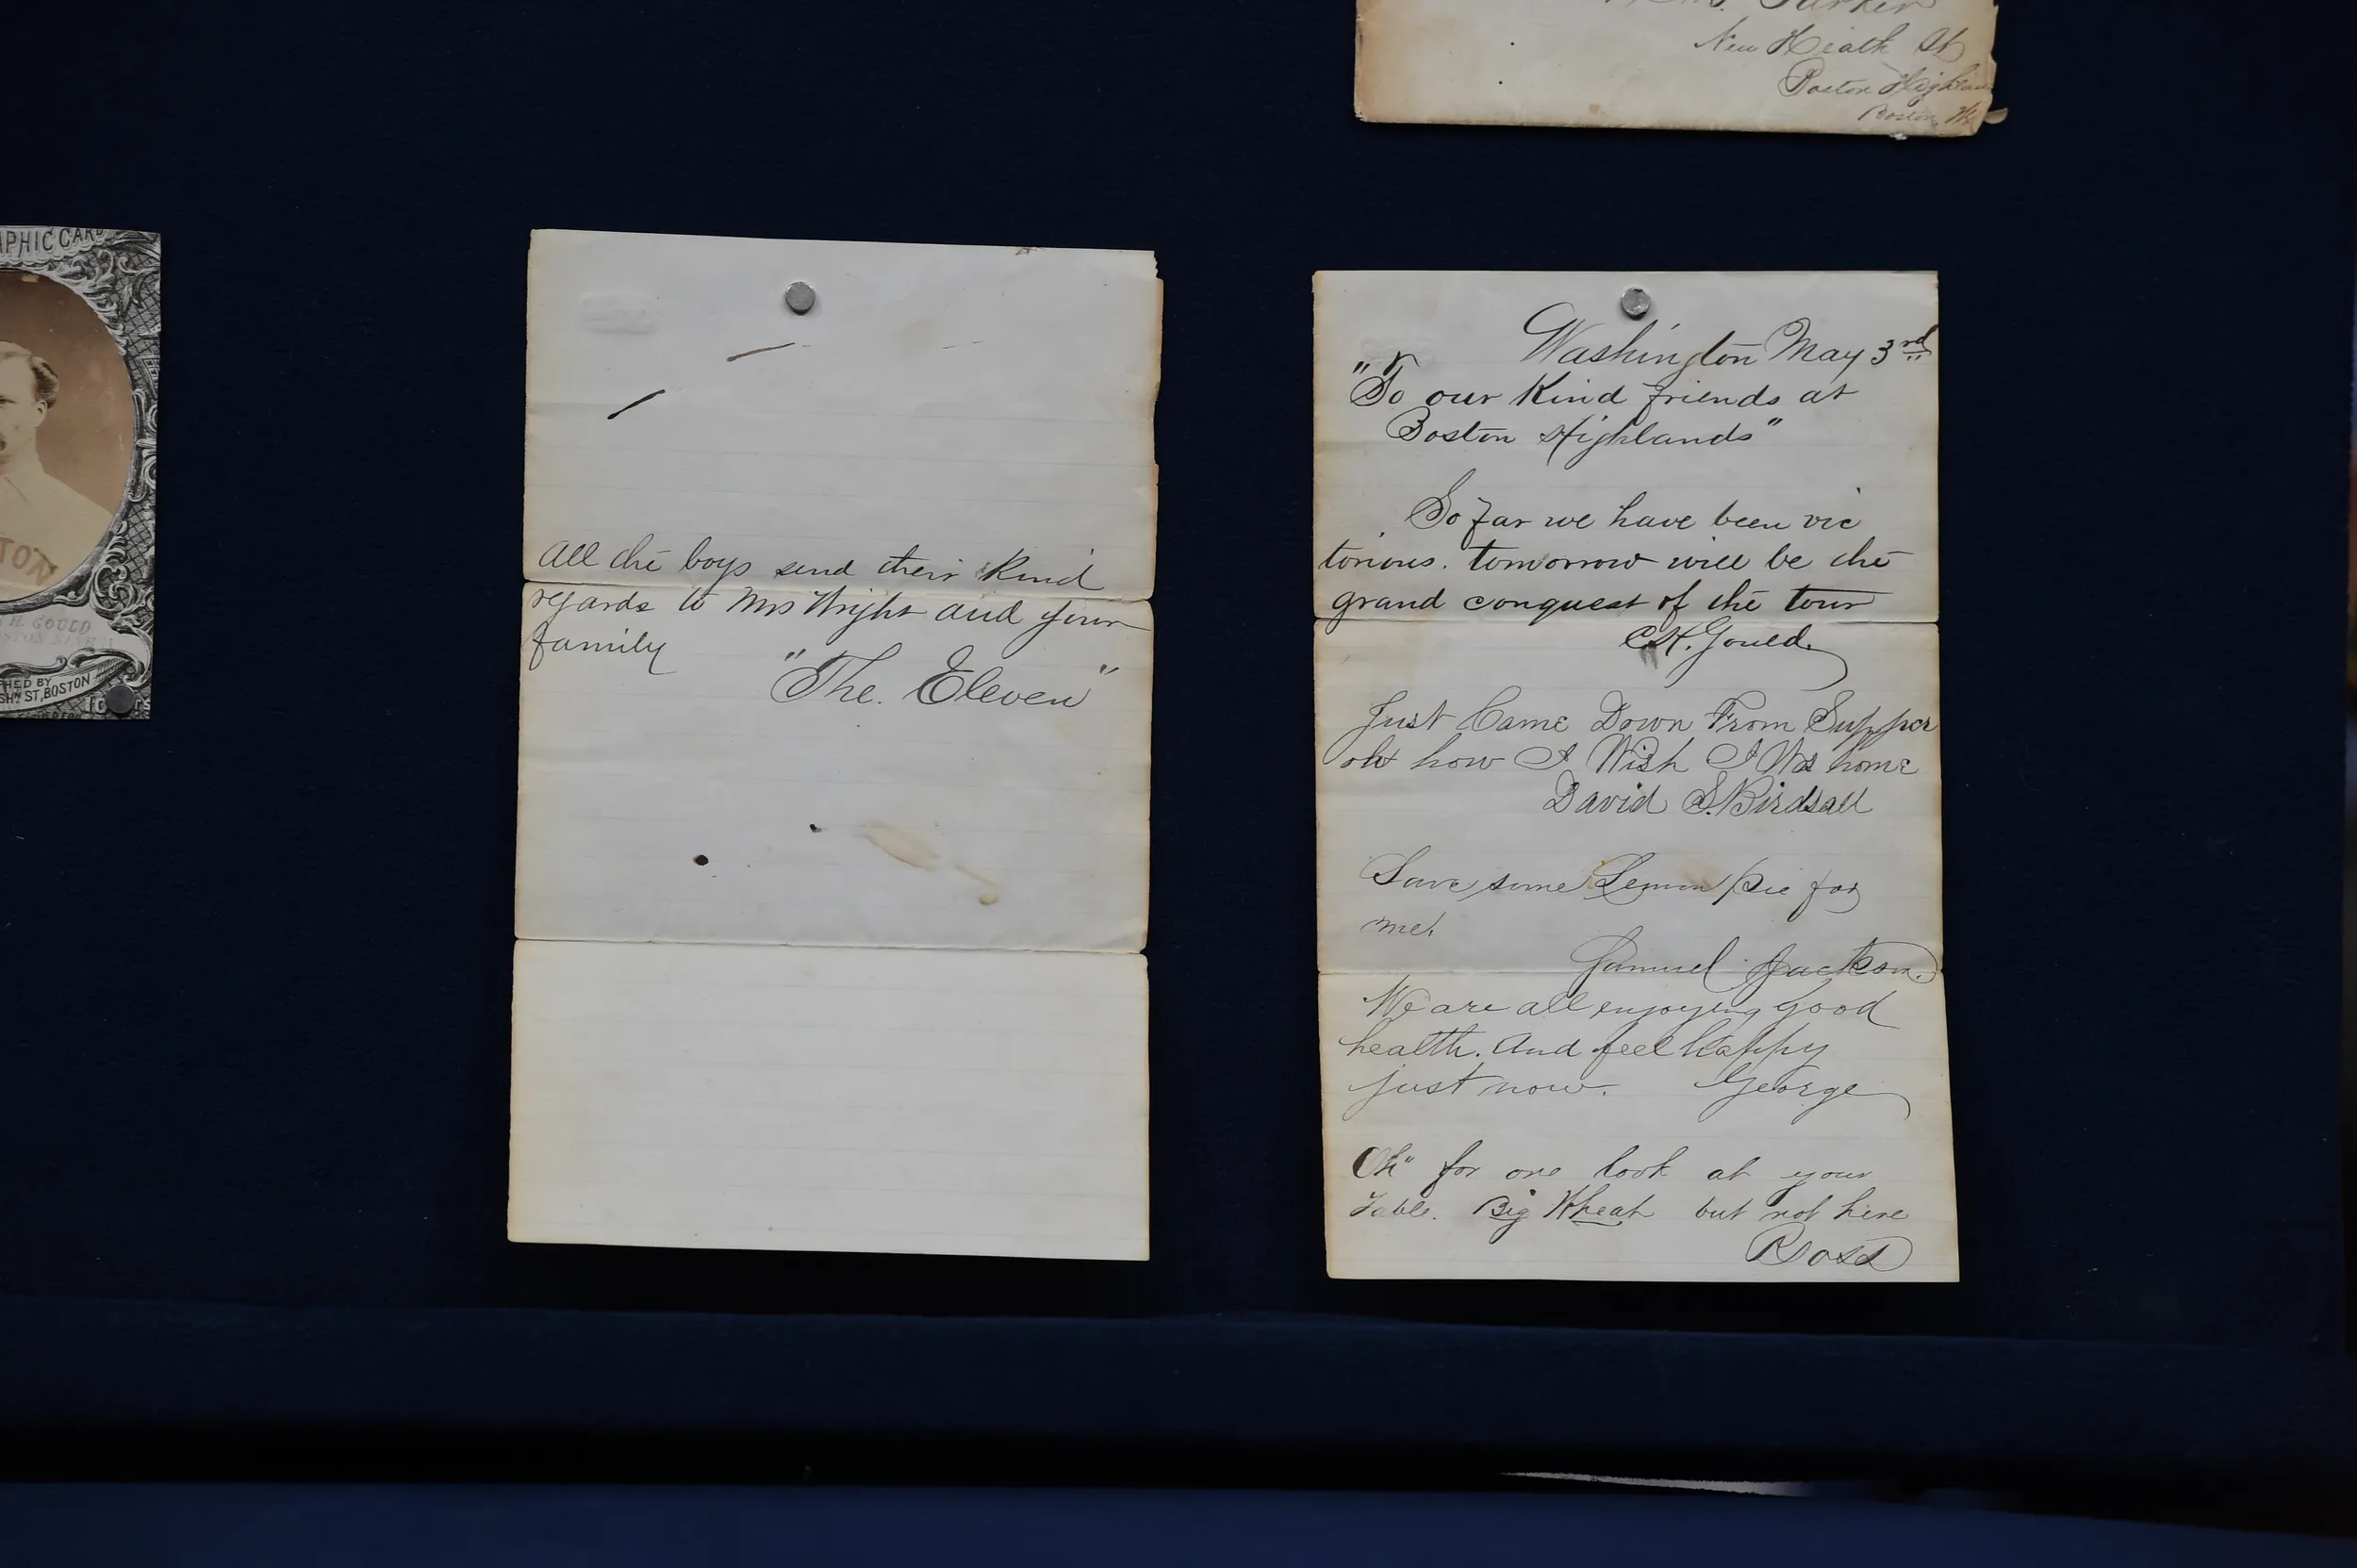 Parker
New Heath St
Boston Highlan
Boston, Ms
APHIC CARD
TON
H. GOULD
HED BY
SHN ST, BOSTON
All the boys send their Kind
regards to Mrs Wright and your
family
"The. Eleven"
Washington May 3rd
"To our Kind friends at
Boston Highlands"
So far we have been vic
torious. tomorrow will be the
grand conquest of the tour
C.H. Gould.
Just Came Down From Supper
oh how I Wish I Was home
David S. Birdsall
Save some Lemon Pie for
me.
Samuel Jackson.
We are all enjoying good
health. And feel happy
just now. George
Oh" for one look at your
Table. Big Wheat but not here
Ross